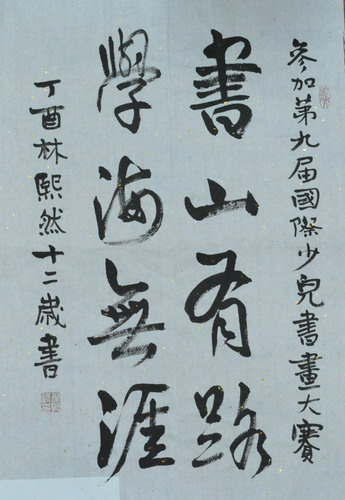 參加第九届國際少兒書畫大賽
書山有路
學海無涯
丁酉林熙然十二歲書